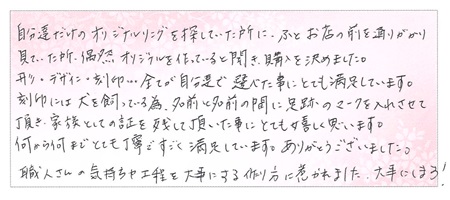 自分達だけのオリジナルリングを探していた所に、ふとお店の前を通りがかり
見ていた所、偶然オリジナルを作っていると聞き、購入を決めました。
形・デザイン・刻印…全てが自分達で選べた事にとても満足しています。
刻印には犬を飼っている為、名前と名前の間に足跡のマークを入れさせて
頂き、家族としての証を残して頂いた事にとても嬉しく思います。
何から何までとても丁寧ですごく満足しています。ありがとうございました。
職人さんの気持ちや工程を大事にする作り方に惹かれました。大事にしまろ!